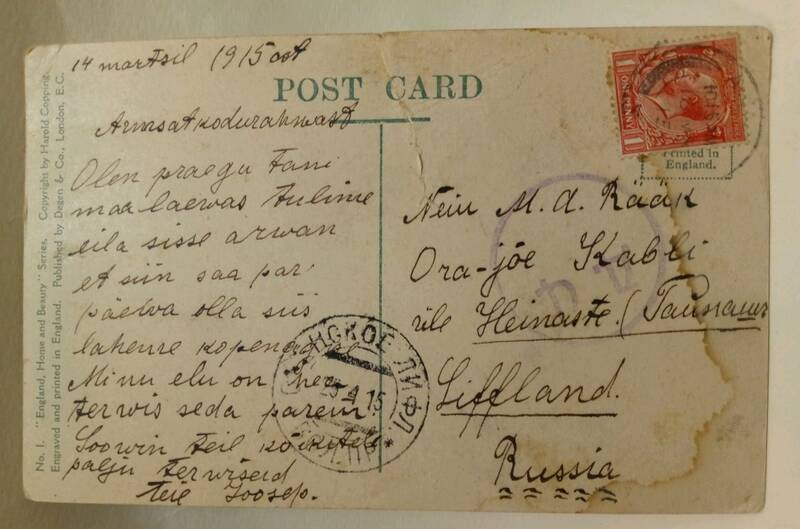 14 martsil 1915 ast
POST CARD
Armsat kodurahwast
Olen praegu Tani
maa laewas tulime
eila sisse arwan
et siin saa pari
päewa olla siis
laheme kopenag
Minu elu on hea
terwis seda parem
Soowin teil kõikitele
palju terwiseid
teie Joosep.
Neiu M. d. Rääk
Ora-jõe Kabli
üle Heinaste. (
Liffland.
Russia
ONE PENNY
Printed in
England.
ЛИФЛ
15
No. 1. "England, Home and Beauty" Series. Copyright by Harold Copping.
Engraved and printed in England. Published by Degen & Co., London, E.C.